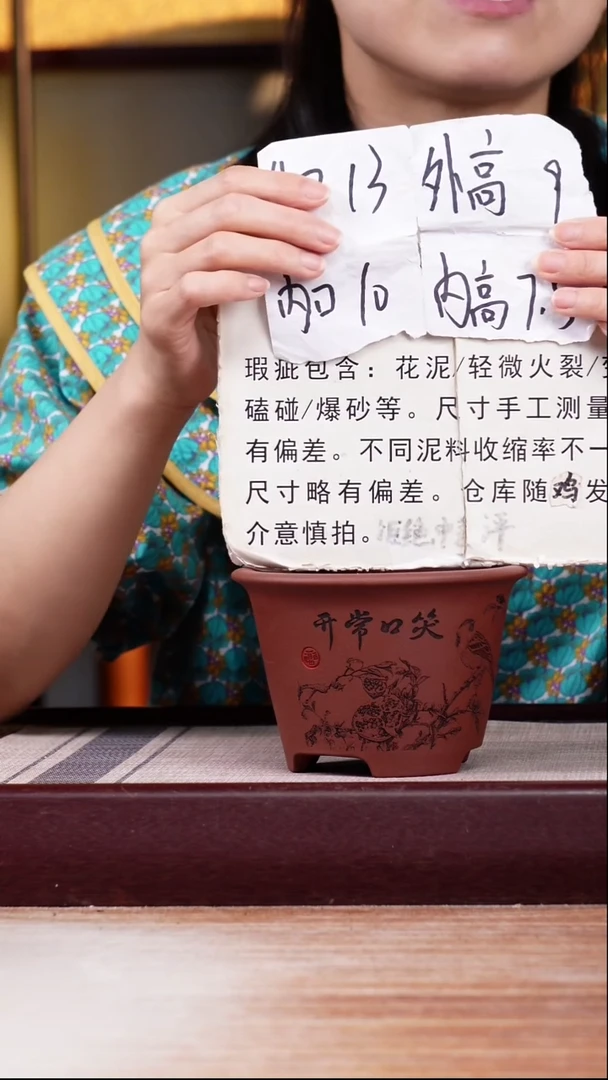 13 外高 9
内口 10 内高 7.
瑕疵包含：花泥/轻微火裂/
磕碰/爆砂等。尺寸手工测量
有偏差。不同泥料收缩率不一
尺寸略有偏差。仓库随鸡发
介意慎拍。
笑口常开